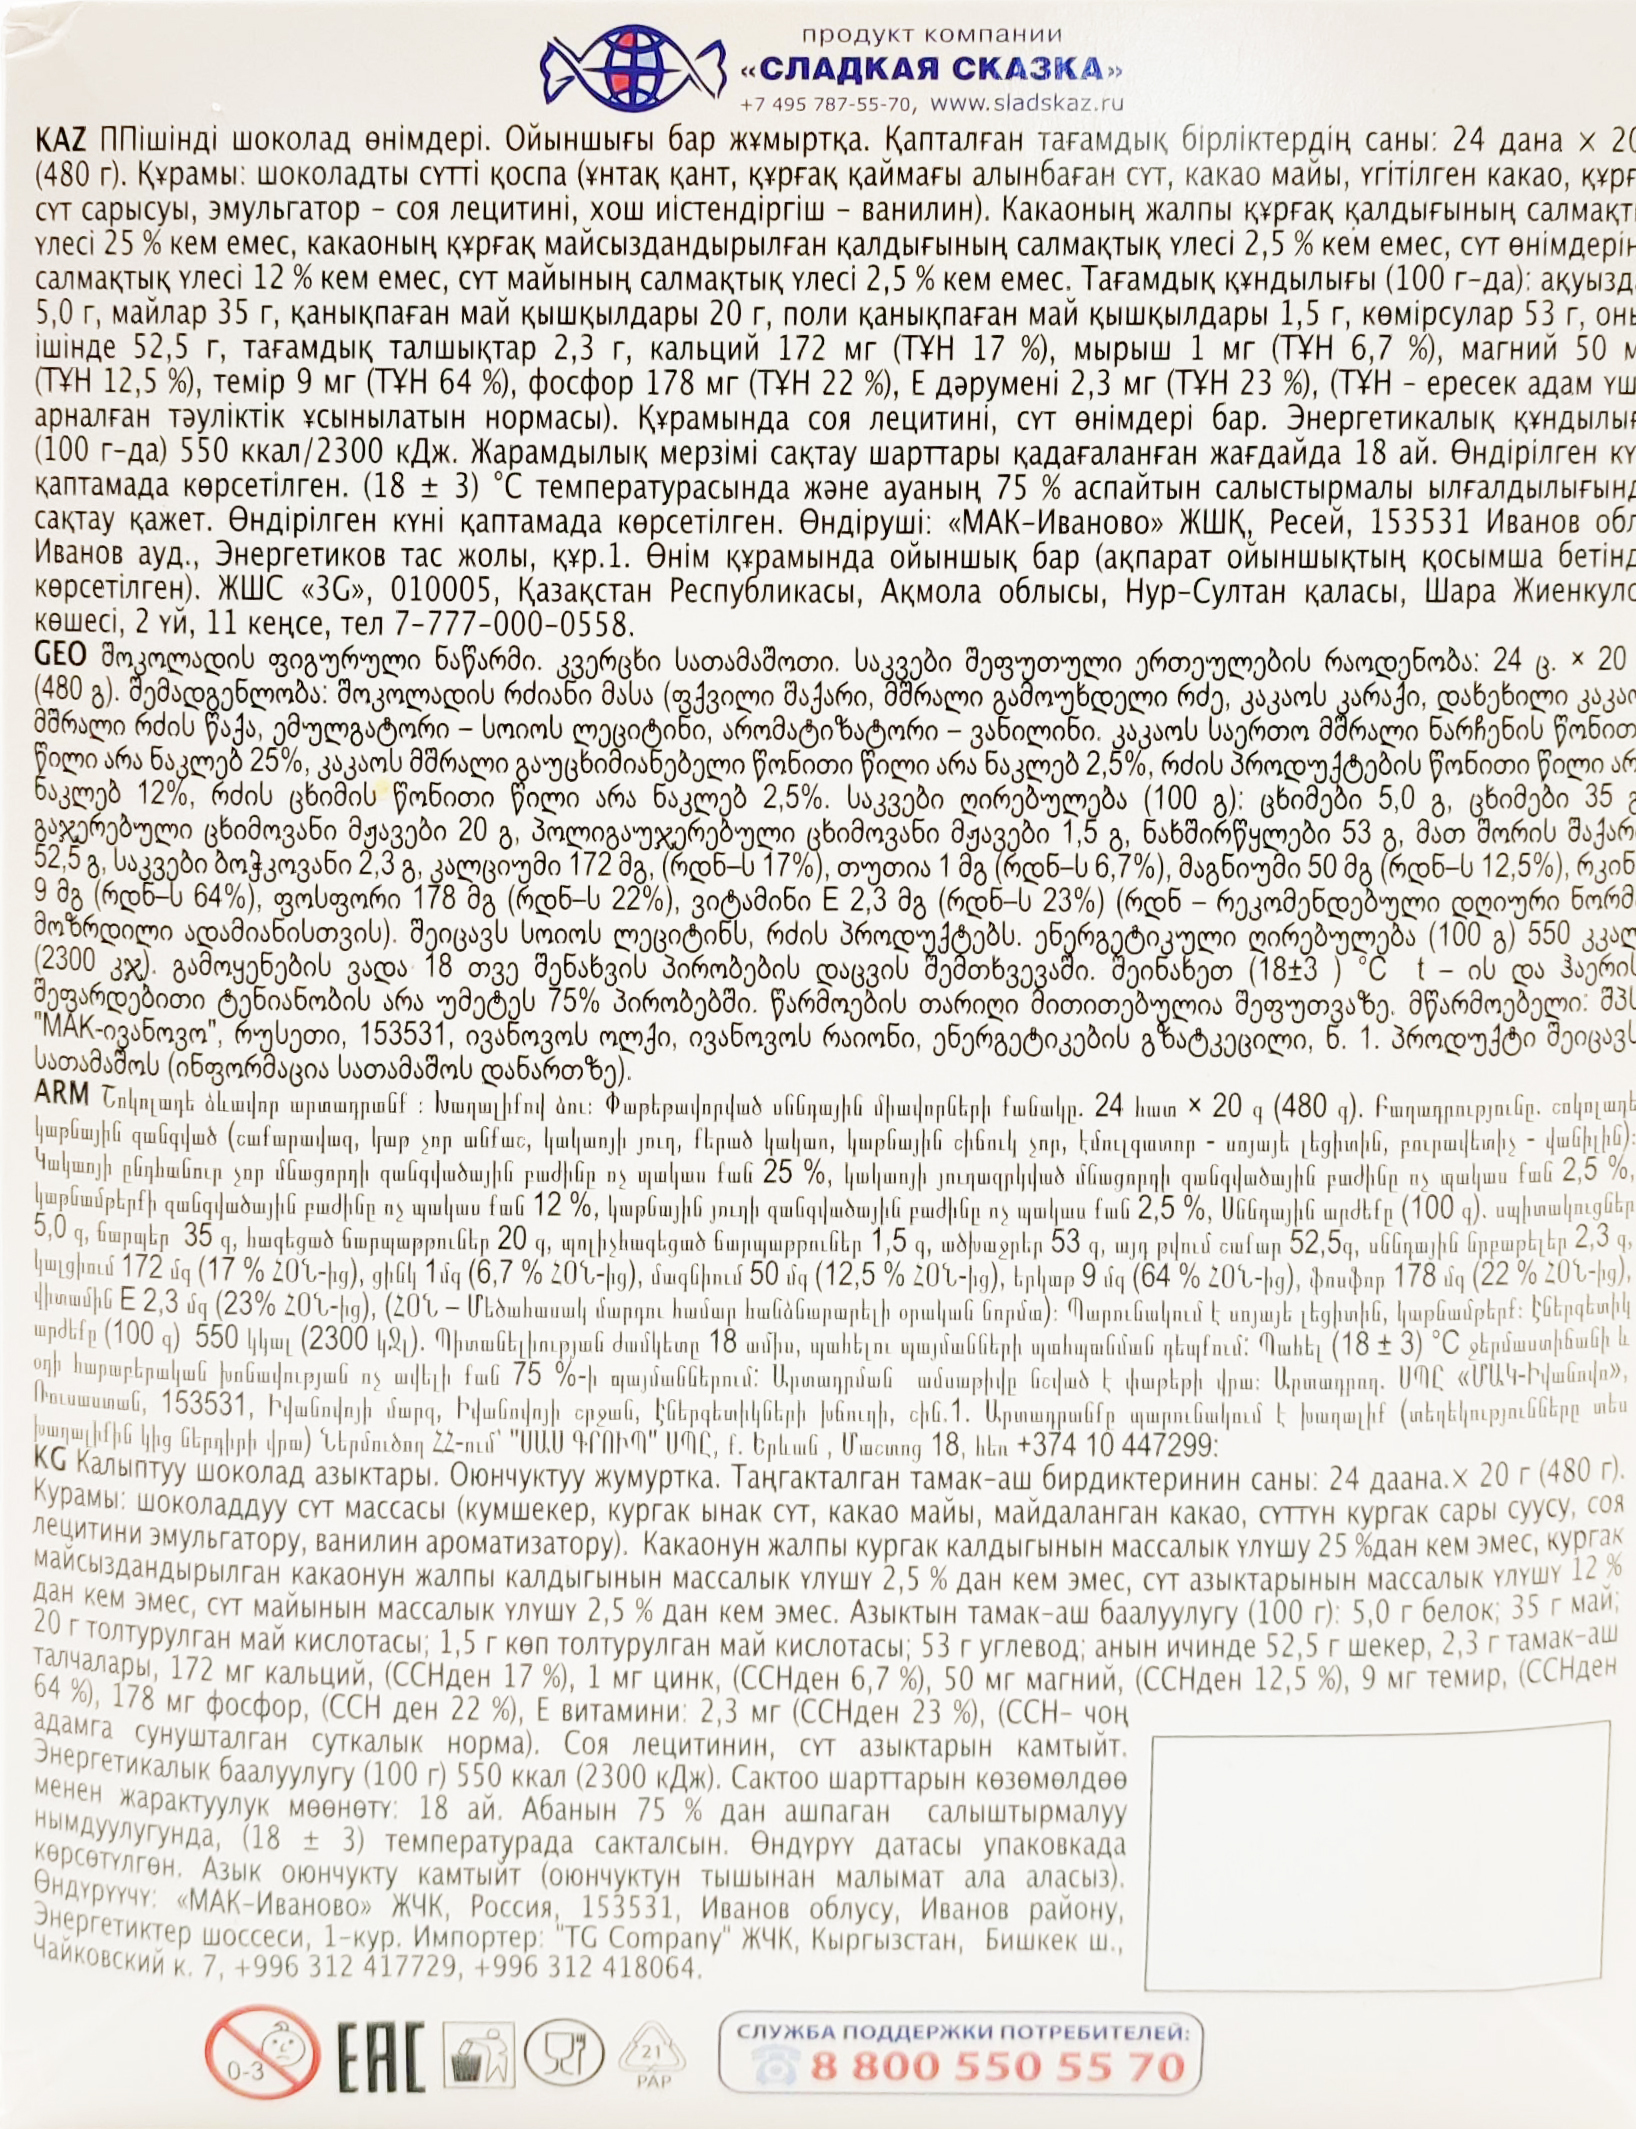 продукт компании
«СЛАДКАЯ СКАЗКА»
+7 495 787-55-70, www.sladskaz.ru
KAZ ППішінді шоколад өнімдері. Ойыншығы бар жұмыртқа. Қапталған тағамдық бірліктердің саны: 24 дана × 20
(480 г). Құрамы: шоколадты сүтті қоспа (ұнтақ қант, құрғақ қаймағы алынбаған сүт, какао майы, үгітілген какао,
сүт сарысуы, эмульгатор – соя лецитині, хош иістендіргіш – ванилин). Какаоның жалпы құрғақ қалдығының
үлесі 25 % кем емес, какаоның құрғақ майсыздандырылған қалдығының салмақтық үлесі 2,5 % кем емес, сүт
салмақтық үлесі 12 % кем емес, сүт майының салмақтық үлесі 2,5 % кем емес. Тағамдық құндылығы (100 г-да):
5,0 г, майлар 35 г, қанықпаған май қышқылдары 20 г, поли қанықпаған май қышқылдары 1,5 г, көмірсулар 53 г,
ішінде 52,5 г, тағамдық талшықтар 2,3 г, кальций 172 мг (ТҰН 17 %), мырыш 1 мг (ТҰН 6,7 %), магний 50
(ТҰН 12,5 %), темір 9 мг (ТҰН 64 %), фосфор 178 мг (ТҰН 22 %), Е дәрумені 2,3 мг (ТҰН 23 %), (ТҰН – ересек адам
арналған тәуліктік ұсынылатын нормасы). Құрамында соя лецитині, сүт өнімдері бар. Энергетикалық
(100 г-да) 550 ккал/2300 кДж. Жарамдылық мерзімі сақтау шарттары қадағаланған жағдайда 18 ай. Өндірілген
қаптамада көрсетілген. (18 ± 3) °С температурасында және ауаның 75 % аспайтын салыстырмалы
сақтау қажет. Өндірілген күні қаптамада көрсетілген. Өндіруші: «МАК-Иваново» ЖШҚ, Ресей, 153531 Иванов
Иванов ауд., Энергетиков тас жолы, құр.1. Өнім құрамында ойыншық бар (ақпарат ойыншықтың қосымша
көрсетілген). ЖШС «3G», 010005, Қазақстан Республикасы, Ақмола облысы, Нур-Султан қаласы, Шара
көшесі, 2 үй, 11 кеңсе, тел 7-777-000-0558.
GEO შოკოლადის ფიგურული ნაწარმი. კვერცხი სათამაშოთი. საკვები შეფუთული ერთეულების რაოდენობა: 24 ც. × 20
(480 გ). შემადგენლობა: შოკოლადის რძიანი მასა (ფქვილი შაქარი, მშრალი გამოუხდელი რძე, კაკაოს კარაქი, დახეხილი
მშრალი რძის წაქა, ემულგატორი – სოიოს ლეციტინი, არომატიზატორი – ვანილინი. კაკაოს საერთო მშრალი ნარჩენის
წილი არა ნაკლებ 25%, კაკაოს მშრალი გაუცხიმიანებელი წონითი წილი არა ნაკლებ 2,5%, რძის პროდუქტების წონითი წილი
ნაკლებ 12%, რძის ცხიმის წონითი წილი არა ნაკლებ 2,5%. საკვები ღირებულება (100 გ): ცხიმები 5,0 გ, ცხიმები 35
გაჯერებული ცხიმოვანი მჟავები 20 გ, პოლიგაუჯერებული ცხიმოვანი მჟავები 1,5 გ, ნახშირწყლები 53 გ, მათ შორის
52,5 გ, საკვები ბოჭკოვანი 2,3 გ, კალციუმი 172 მგ, (რდნ–ს 17%), თუთია 1 მგ (რდნ–ს 6,7%), მაგნიუმი 50 მგ (რდნ–ს 12,5%),
9 მგ (რდნ–ს 64%), ფოსფორი 178 მგ (რდნ–ს 22%), ვიტამინი E 2,3 მგ (რდნ–ს 23%) (რდნ – რეკომენდებული დღიური
მოზრდილი ადამიანისთვის). შეიცავს სოიოს ლეციტინს, რძის პროდუქტებს. ენერგეტიკული ღირებულება (100 გ) 550
(2300 კჯ). გამოყენების ვადა 18 თვე შენახვის პირობების დაცვის შემთხვევაში. შეინახეთ (18±3 ) °C t – ის და ჰაერის
შეფარდებითი ტენიანობის არა უმეტეს 75% პირობებში. წარმოების თარიღი მითითებულია შეფუთვაზე. მწარმოებელი: შპს
"МАК-ივანოვო", რუსეთი, 153531, ივანოვოს ოლქი, ივანოვოს რაიონი, ენერგეტიკების გზატკეცილი, ნ. 1. პროდუქტი შეიცავს
სათამაშოს (ინფორმაცია სათამაშოს დანართზე).
ARM Շոկոլադե ձևավոր արտադրանք : Խաղալիքով ձու: Փաթեթավորված սննդային միավորների քանակը. 24 հատ × 20 գ (480 գ). Բաղադրությունը. շոկոլադե
կաթնային զանգված (շաքարավազ, կաթ չոր անքաշ, կակաոյի յուղ, քերած կակաո, կաթնային շիճուկ չոր, էմուլգատոր - սոյայե լեցիտին, բուրավետիչ - վանիլին):
Կակաոյի ընդհանուր չոր մնացորդի զանգվածային բաժինը ոչ պակաս քան 25 %, կակաոյի յուղազրկված մնացորդի զանգվածային բաժինը ոչ պակաս քան 2,5 %,
կաթնամթերքի զանգվածային բաժինը ոչ պակաս քան 12 %, կաթնային յուղի զանգվածային բաժինը ոչ պակաս քան 2,5 %, Սննդային արժեքը (100 գ). սպիտակուցներ
5,0 գ, ճարպեր 35 գ, հագեցած ճարպաթթուներ 20 գ, պոլիչհագեցած ճարպաթթուներ 1,5 գ, ածխաջրեր 53 գ, այդ թվում շաքար 52,5գ, սննդային նրբաթելեր 2,3 գ,
կալցիում 172 մգ (17 % ՀՕՆ-ից), ցինկ 1մգ (6,7 % ՀՕՆ-ից), մագնիում 50 մգ (12,5 % ՀՕՆ-ից), երկաթ 9 մգ (64 % ՀՕՆ-ից), ֆոսֆոր 178 մգ (22 % ՀՕՆ-ից),
վիտամին E 2,3 մգ (23% ՀՕՆ-ից), (ՀՕՆ – Մեծահասակ մարդու համար հանձնարարելի օրական նորմա): Պարունակում է սոյայե լեցիտին, կաթնամթերք: Էներգետիկ
արժեքը (100 գ) 550 կկալ (2300 կՋլ). Պիտանելիության ժամկետը 18 ամիս, պահելու պայմանների պահպանման դեպքում: Պահել (18 ± 3) °C ջերմաստիճանի և
օդի հարաբերական խոնավության ոչ ավելի քան 75 %-ի պայմաններում: Արտադրման ամսաթիվը նշված է փաթեթի վրա: Արտադրող. ՍՊԸ «ՄԱԿ-Իվանովո»,
Ռուսաստան, 153531, Իվանովոյի մարզ, Իվանովոյի շրջան, Էներգետիկների խճուղի, շին.1. Արտադրանքը պարունակում է խաղալիք (տեղեկությունները տես
խաղալիքին կից ներդիրի վրա) Ներմուծող ՀՀ-ում՝ "ՍԱՍ ԳՐՈՒՊ" ՍՊԸ, ք. Երևան , Մաշտոց 18, հեռ +374 10 447299:
KG Калыптуу шоколад азыктары. Оюнчуктуу жумуртка. Таңгакталган тамак-аш бирдиктеринин саны: 24 даана.× 20 г (480 г).
Курамы: шоколаддуу сүт массасы (кумшекер, кургак ынак сүт, какао майы, майдаланган какао, сүттүн кургак сары суусу, соя
лецитини эмульгатору, ванилин ароматизатору). Какаонун жалпы кургак калдыгынын массалык үлүшү 25 %дан кем эмес, кургак
майсыздандырылган какаонун жалпы калдыгынын массалык үлүшү 2,5 % дан кем эмес, сүт азыктарынын массалык үлүшү 12 %
дан кем эмес, сүт майынын массалык үлүшү 2,5 % дан кем эмес. Азыктын тамак-аш баалуулугу (100 г): 5,0 г белок; 35 г май;
20 г толтурулган май кислотасы; 1,5 г көп толтурулган май кислотасы; 53 г углевод; анын ичинде 52,5 г шекер, 2,3 г тамак-аш
талчалары, 172 мг кальций, (ССНден 17 %), 1 мг цинк, (ССНден 6,7 %), 50 мг магний, (ССНден 12,5 %), 9 мг темир, (ССНден
64 %), 178 мг фосфор, (ССН ден 22 %), Е витамини: 2,3 мг (ССНден 23 %), (ССН– чоң
адамга сунушталган суткалык норма). Соя лецитинин, сүт азыктарын камтыйт.
Энергетикалык баалуулугу (100 г) 550 ккал (2300 кДж). Сактоо шарттарын көзөмөлдөө
менен жарактуулук мөөнөтү: 18 ай. Абанын 75 % дан ашпаган салыштырмалуу
нымдуулугунда, (18 ± 3) температурада сакталсын. Өндүрүү датасы упаковкада
көрсөтүлгөн. Азык оюнчукту камтыйт (оюнчуктун тышынан малымат ала аласыз).
Өндүрүүчү: «МАК-Иваново» ЖЧК, Россия, 153531, Иванов облусу, Иванов району,
Энергетиктер шоссеси, 1-кур. Импортер: "TG Company" ЖЧК, Кыргызстан, Бишкек ш.,
Чайковский к. 7, +996 312 417729, +996 312 418064.
0-3
EAC
21
PAP
СЛУЖБА ПОДДЕРЖКИ ПОТРЕБИТЕЛЕЙ:
8 800 550 55 70